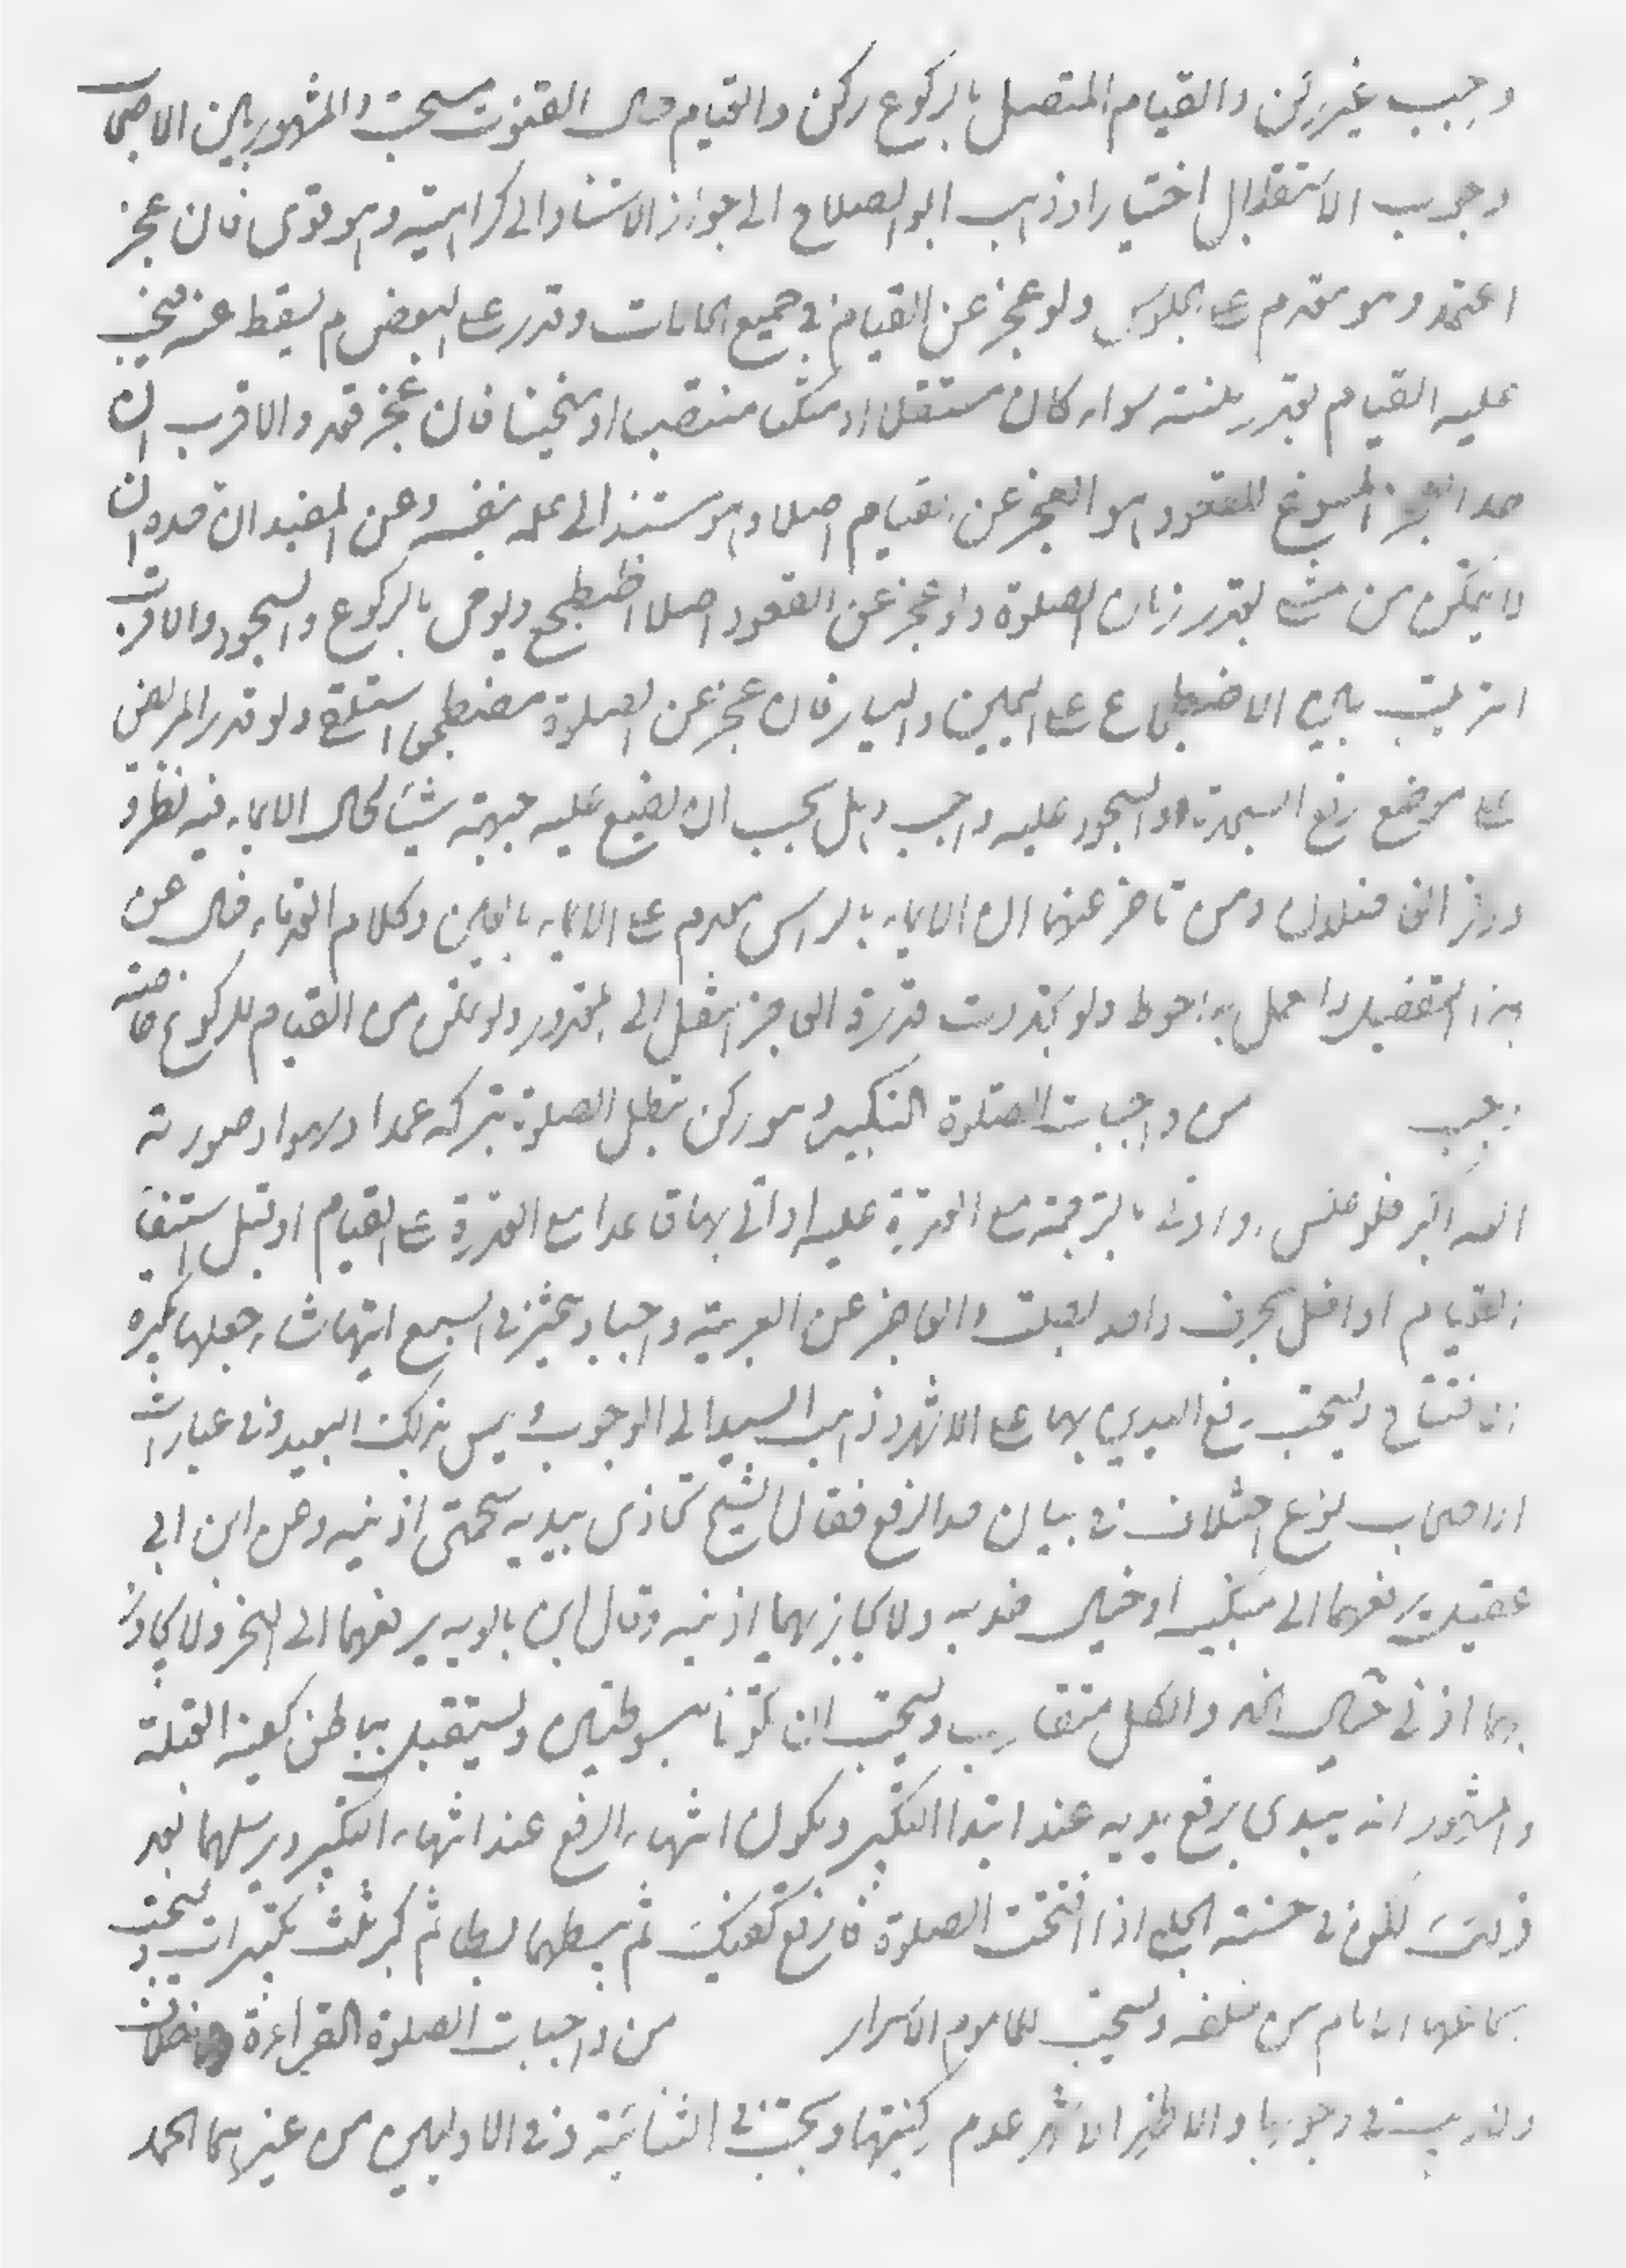 وجب غير ركن والقيام المتصل بالركوع ركن والقيام حال القنوت مستحب والمشهور بين الاصحاب
وجوب الاستقلال اختيارا وذهب ابو الصلاح الى جواز الاستناد الى كراهيته وهو قوى فان عجز
اعتمد وهو مقدم على الجلوس ولو عجز عن القيام في جميع الحالات وقدر على البعض لم يسقط عنه فيجب
عليه القيام بقدر مكنته سواء كان مستقلا او متكئا منتصبا او منحنيا فان عجز قعد والاقرب ان
حد العجز المسوغ للقعود هو العجز عن القيام اصلا وهو مستند الى علمه بنفسه وعن المفيد ان حده ان
لا يتمكن من المشي بقدر زمان الصلوة ولو عجز عن القعود اصلا اضطجع ويومى بالركوع والسجود والاقرب
الترتيب بين الاضطجاع على اليمين واليسار فان عجز عن الصلوة مضطجعا استلقى ولو قدر المريض
على موضع رفع السجدة والسجود عليه وجب وهل يجب ان يضع عليه جبهته شيئا حال الايماء فيه نظر و
ذكر الفاضلان ومن تاخر عنهما ان الايماء بالراس مقدم على الايماء بالعين وكلام القدماء خال عن
هذا التفصيل والعمل به احوط ولو تجددت قدرة العاجز انتقل الى المقدور ولو تمكن من القيام للركوع خاصة
وجب من واجبات الصلوة التكبير وهو ركن تبطل الصلوة بتركه عمدا وسهوا وصورته
الله اكبر فلو عكس او اتى بالترجمة مع القدرة عليه او اتى بها قاعدا مع القدرة على القيام او قبل استيفاء
القيام او اخل بحرف واحد بطلت والعاجز عن العربية واجبا ويتخير في السبع ايتها شاء جعلها تكبيرة
الافتتاح ويستحب رفع اليدين بها على الاشهر وذهب السيد الى الوجوب وليس بذلك البعيد وفي عبارات
الاصحاب نوع اختلاف في بيان حد الرفع فقال الشيخ يحاذى بيديه شحمتى اذنيه وعن ابن ابي
عقيل يرفعهما الى منكبيه او حيال خديه ولا يجاوز بهما اذنيه وقال ابن بابويه يرفعهما الى النحر ولا يجاوز
بهما اذنى حيال الخد والكل متقارب ويستحب ان تكونا مبسوطتين ويستقبل بباطن كفيه القبلة
والمشهور انه يبتدى برفع يديه عند ابتدا التكبير ويكون انتهاء الرفع عند انتهاء التكبير ويرسلهما بعد
ذلك لكن في حسنة الحلبي اذا افتتحت الصلوة فارفع كفيك ثم ابسطهما بسطا ثم كبر ثلث تكبيرات ويستحب
اسماع الامام من خلفه ويستحب للماموم الاسرار من واجبات الصلوة القراءة
ولا ريب في وجوبها والاظهر الاشهر عدم ركنيتها ويجب في الثنائية وفي الاوليين من غيرهما الحمد